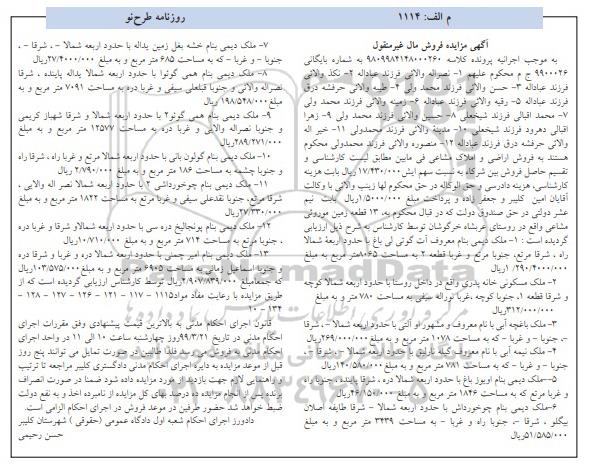 روزنامه طرح‌نو
م الف: ۱۱۱۴
آگهی مزایده فروش مال غیرمنقول
به موجب اجرائیه پرونده کلاسه ۹۸۰۹۹۸۴۱۴۸۰۰۰۲۶۰ به شماره بایگانی
۹۹۰۰۰۲۶ ج م محکوم علیهم ۱- نصراله والائی فرزند عباداله ۲- نکذ والائی
فرزند عباداله ۳- حسن والائی فرزند محمد ولی ۴- طیبه والائی حرفشه درق
فرزند عباداله ۵- رقیه والائی فرزند عباداله ۶- زمینه والائی فرزند محمد ولی
۷- محمد اقبالی فرزند شیخعلی ۸- حسین والائی فرزند محمد ولی ۹- زهرا
اقبالی دهرود فرزند شیخعلی ۱۰- مدینه والائی فرزند محمدولی ۱۱- خیر اله
والائی حرفشه درق فرزند عباداله ۱۲- منصوره والائی فرزند محمدولی محکوم
هستند به فروش اراضی و املاک مشاعی فی مابین مطابق لیست کارشناسی و
تقسیم حاصل فروش بین شرکاء به نسبت سهم ایش ۱۷/۴۳۰/۰۰۰ریال بابت هزینه
کارشناسی، هزینه دادرسی و حق الوکاله در حق محکوم لها زینب والائی با وکالت
آقایان امین کلیبر و جعفر زاده و پرداخت مبلغ ۱/۵۰۰۰/۰۰۰ریال بابت نیم
عشر دولتی در حق صندوق دولت که در قبال محکوم به، ۱۳ قطعه زمین موروثی
مشاعی واقع در روستای عربشاه خرگوشان توسط کارشناس به شرح ذیل ارزیابی
گردیده است : ۱- ملک دیمی بنام معروف آت گوتی لی باغ با حدود اربعه شمالا
راه ، شرقا مرتع، جنوبا مرتع و غربا قطعه ۲ به مساحت ۸۰۶۵متر مربع و به مبلغ
۱/۲۹۰/۴۰۰/۰۰۰ریال
۲- ملک مسکونی خانه پدری واقع در داخل روستا با حدود اربعه شمالا کوچه
و شرقا قطعه ۱، جنوبا کوچه ،غربا نوراله سیفی به مساحت ۷۸۰ متر و به مبلغ
۳۱۲/۰۰۰/۰۰۰ریال
۳- ملک باغچه آبی با نام معروف و مشهور او آلتی با حدود اربعه شمالا -، شرقا
-، جنوبا - و غربا - که به مساحت ۱۰۷۸ متر مربع و به مبلغ ۲۶۹/۰۰۰/۰۰۰ریال
۴- ملک نیمه آبی با نام معروف گیله نارلیق با حدود اربعه شمالا -، شرقا - ،
جنوبا - و غربا - که به مساحت ۷۸۱ متر مربع و به مبلغ ۱۴۰/۵۸۰/۰۰۰ریال
۵-ملک دیمی بنام اویوز باغ با حدود اربعه شمالا دره ، شرقا پاینده ، جنوبا راه
و غربا مرتع که به مساحت ۱۸۴۶ متر مربع و به مبلغ ۴۶/۱۵۰/۰۰۰ریال
۶-ملک دیمی بنام چوخورداش با حدود اربعه شمالا - شرقا طایفه اصلان
بیگلو ، شرقا -، جنوبا راه وغربا - به مساحت ۳۴۳۹ متر مربع و به مبلغ
۵۱/۵۸۵/۰۰۰ریال
۷- ملک دیمی بنام خشه بغل زمین یداله با حدود اربعه شمالا - ، شرقا - ،
جنوبا - و غربا - که به مساحت ۶۸۵ متر مربع و به مبلغ ۲۷/۴۰۰۰/۰۰۰ریال
۸- ملک دیمی بنام همی گوتوا با حدود اربعه شمالا یداله پاینده ، شرقا
نصراله والائی و جنوبا قتلعلی سیفی و غربا دره به مساحت ۷۰۹۱ متر مربع و به
مبلغ ۱۹۸/۵۴۸/۰۰۰ریال
۹- ملک دیمی بنام همی گوتو۲ با حدود اربعه شمالا و شرقا شهباز کریمی
و جنوبا نصراله والائی و غربا دره به مساحت ۱۲۵۷۷ متر مربع و به مبلغ
۲۸۹/۲۷۱/۰۰۰ریال
۱۰- ملک دیمی بنام گولون بانی با حدود اربعه شمالا مرتع و غربا راه، شرقا راه
و جنوبا چشمه به مساحت ۱۸۶ متر مربع و به مبلغ ۲/۷۹۰/۰۰۰ ریال
۱۱- ملک دیمی بنام چوخورداشی ۲ با حدود اربعه شمالا نصر اله والایی ،
شرقا مرتع، جنوبا نقدعلی سیفی و غربا مرتع به مساحت ۱۸۲۲ متر مربع و به مبلغ
۲۷/۳۳۰/۰۰۰ریال
۱۲- ملک دیمی بنام یونجالیخ دره سی با حدود اربعه شمالاو شرقا و غربا دره
، جنوبا مرتع به مساحت ۷۱۴ متر مربع و به مبلغ ۱۰/۷۱۰/۰۰۰ریال
۱۳- ملک دیمی بنام امیر چملی با حدود اربعه شمالا دره و غربا و شرقا دره
و جنوبا اسماعیل زمانی به مساحت ۶۹۰۵ متر مربع و به مبلغ ۱۰۳/۵۷۵/۰۰۰ریال
که جمعامبلغ ۲/۹۰۷/۸۳۹/۰۰۰ریال توسط کارشناس ارزیابی گردیده است که از
طریق مزایده با رعایت مفاد مواد۱۱۵- ۱۱۷ - ۱۲۱ - ۱۲۶ - ۱۲۷ - ۱۲۸ -
۱۳۴ - ۱۰
قانون اجرای احکام مدنی به بالاترین قیمت پیشنهادی وفق مقررات اجرای
احکام مدنی در تاریخ ۹۹/۳/۲۱روز چهارشنبه ساعت ۱۰ الی ۱۱ در واحد اجرای
احکام مدنی به فروش می رسد فلذا طالبین در صورت تمایل می توانند پنج روز
قبل از موعد مزایده به دایره اجرای احکام مدنی دادگستری کلیبر مراجعه تا ترتیب
و راهنمایی لازم جهت بازدید از مورد مزایده داده شود ضمنا در صورت انصراف
برنده پس از انجام مزایده ده درصد بهای کل مزایده از نامبرده اخذ و به نفع دولت
ضبط خواهد شد. حضور طرفین در موعد فروش در اجرای احکام الزامی است.
دادورز اجرای احکام شعبه اول دادگاه عمومی (حقوقی ) شهرستان کلیبر
حسن رحیمی